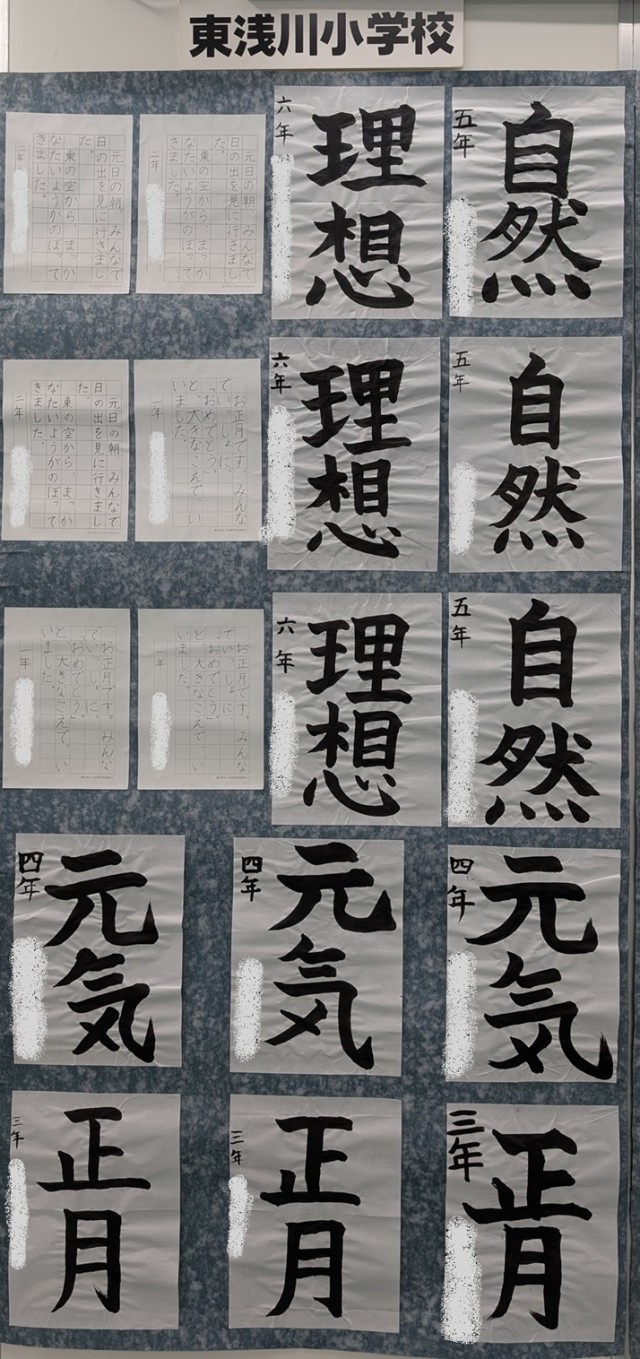 東浅川小学校
自然
五年
理想
六年
元日の朝、みんなで
日の出を見に行きまし
た。
東の空から、まっか
なたいようがのぼって
きました。
二年
元日の朝、みんなで
日の出を見に行きまし
た。
東の空から、まっか
なたいようがのぼって
きました。
二年
自然
五年
理想
六年
お正月です。みんな
で、いっしょに、
「おめでとう」
と、大きなこえで、い
いました。
一年
元日の朝、みんなで
日の出を見に行きまし
た。
東の空から、まっか
なたいようがのぼって
きました。
二年
自然
五年
理想
六年
お正月です。みんな
で、いっしょに、
「おめでとう」
と、大きなこえで、い
いました。
一年
お正月です。みんな
で、いっしょに、
「おめでとう」
と、大きなこえで、い
いました。
一年
元気
四年
元気
四年
元気
四年
正月
三年
正月
三年
正月
三年